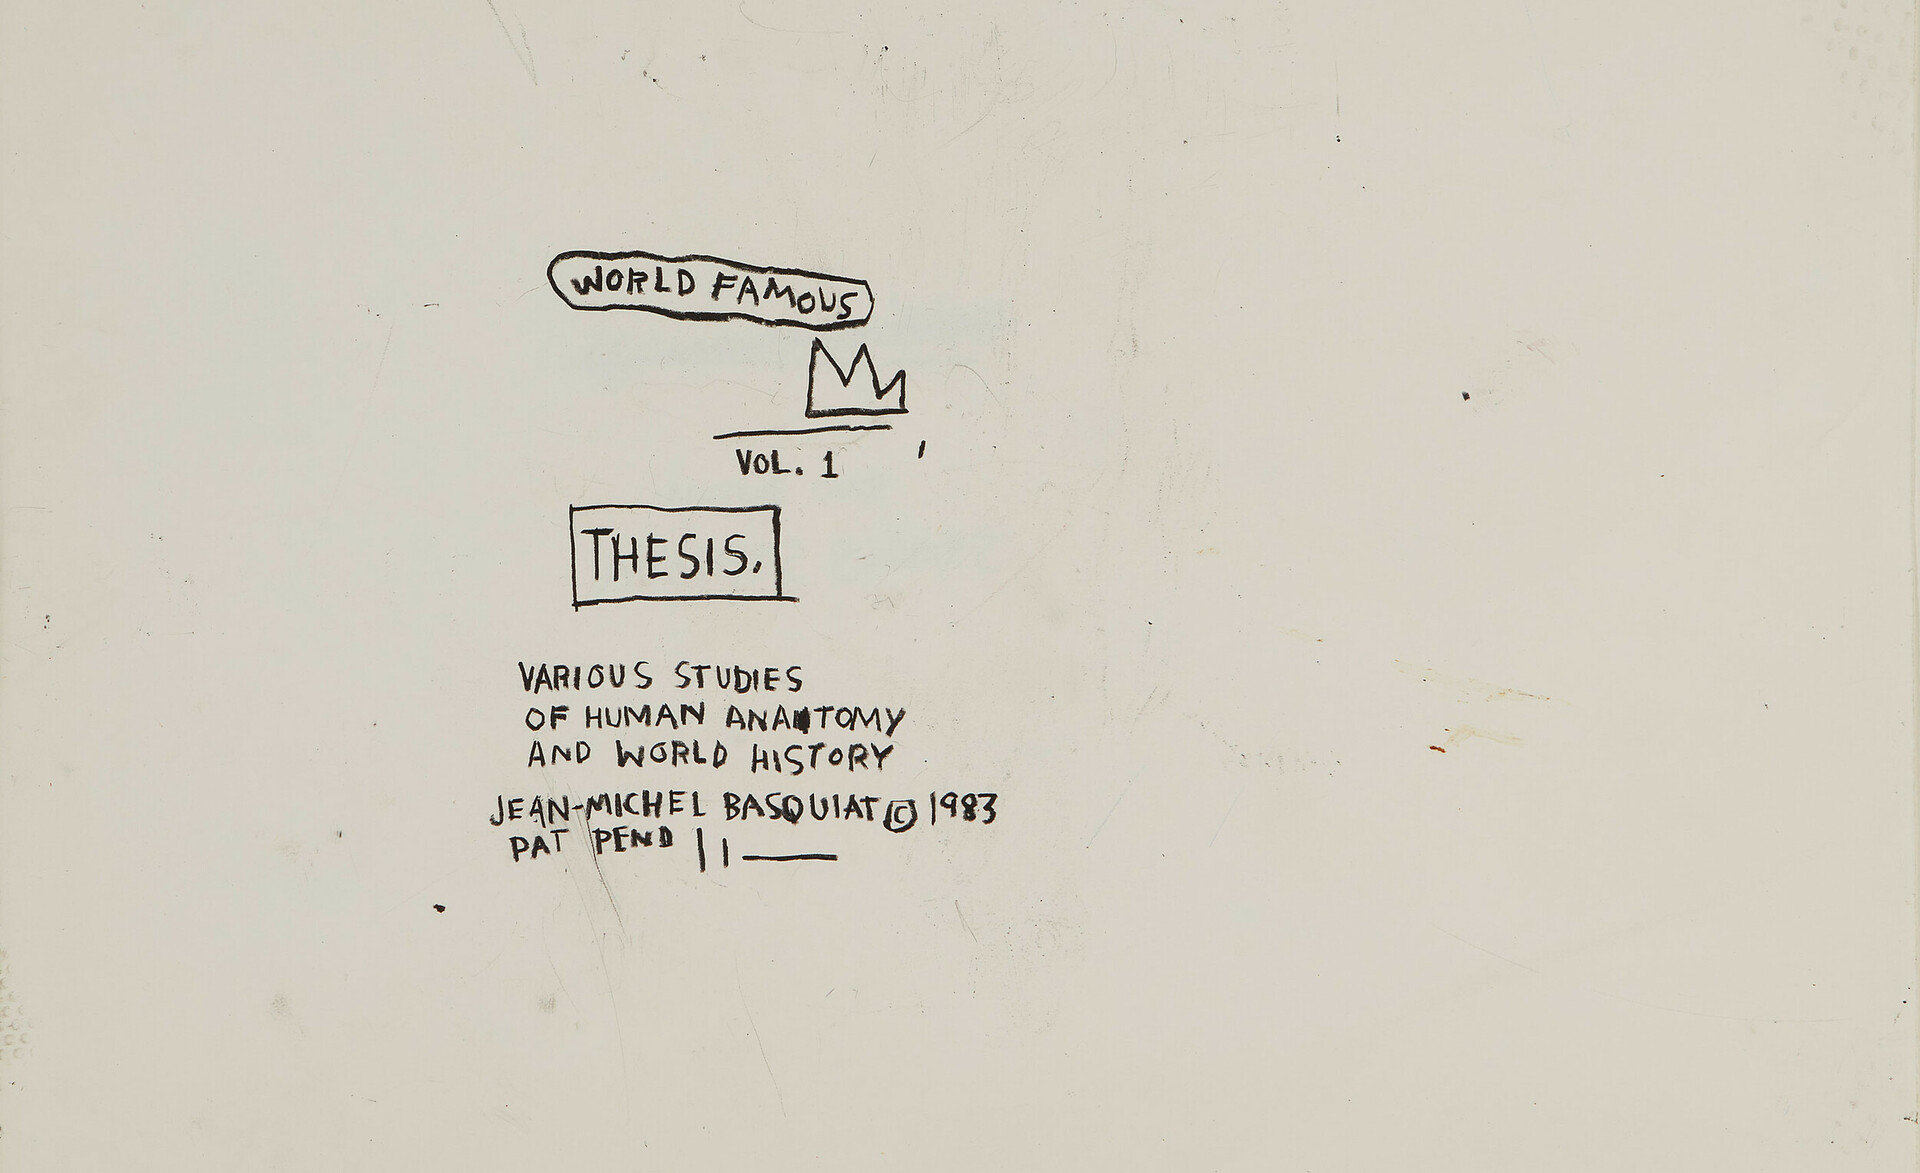 WORLD FAMOUS
VOL. 1
THESIS.
VARIOUS STUDIES
OF HUMAN ANATOMY
AND WORLD HISTORY
JEAN-MICHEL BASQUIAT © 1983
PAT PEND